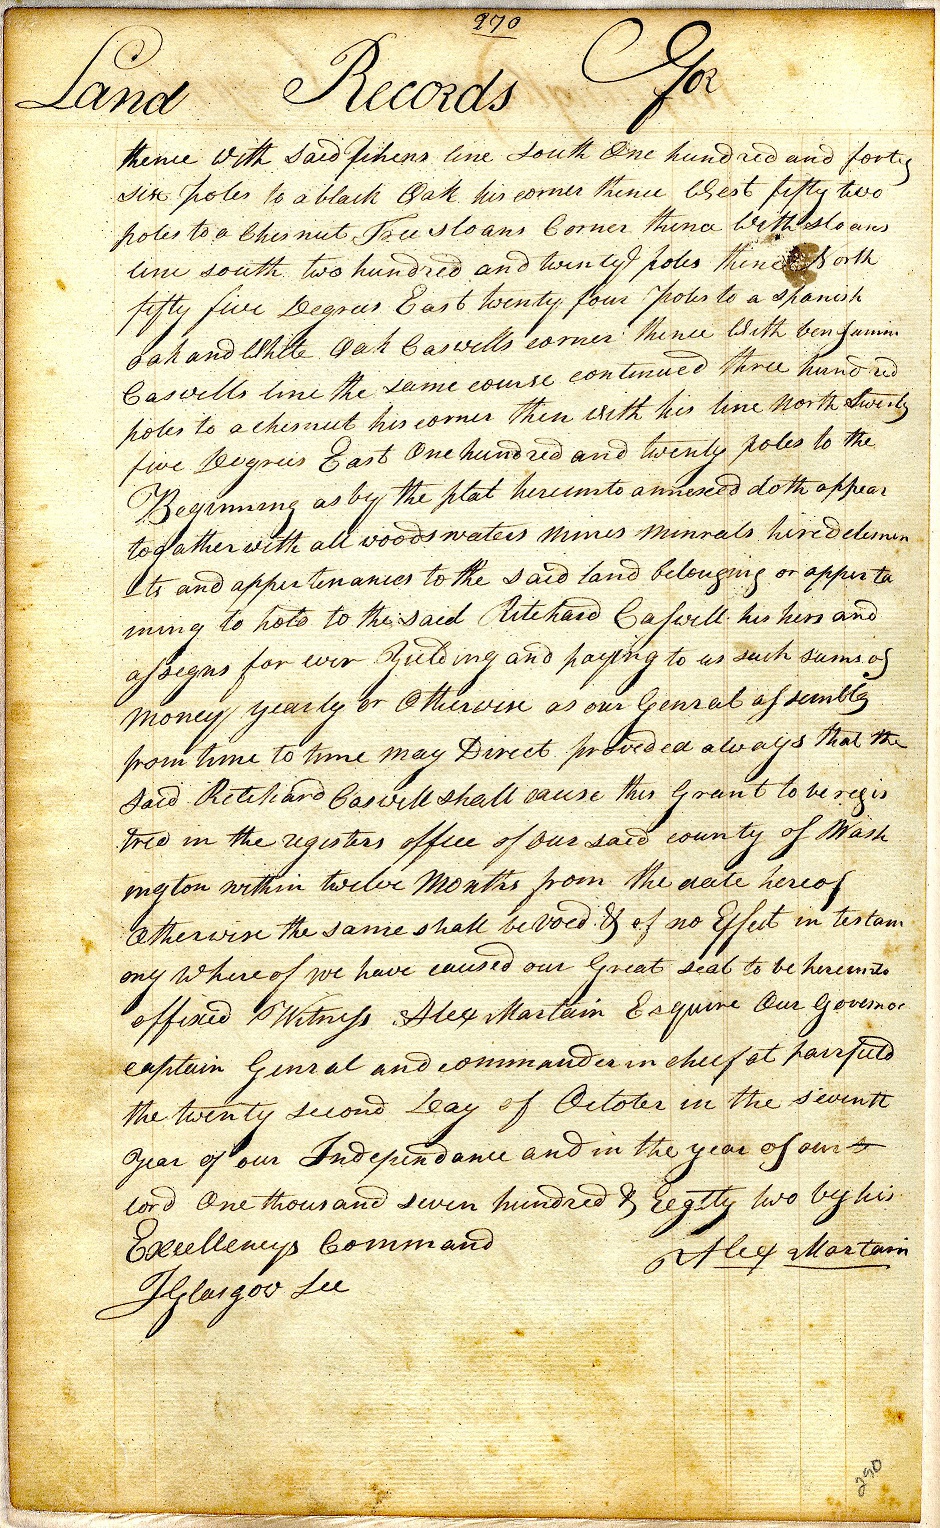 270
Land Records For
thence With Said line South One hundred and forty
Six poles to a black Oak his corner thence West fifty two
poles to a Chesnut Tree Sloans Corner thence With Sloans
line South two hundred and twenty poles thence North
fifty five Degrees East twenty four poles to a Spanish
oak and White Oak Caswells corner thence With benjamin
Caswells line the Same course continued three hundred
poles to a chesnut his corner then with his line North Twenty
five Degreis East One hundred and twenty poles to the
Beginning as by the plat hereunto annexed doth appear
togather with all woods waters mines minrals hiredetemen
ts and appertenances to the Said land belonging or apperta
ining to hold to the Said Ritchard Caswell his hers and
assegns for ever Yielding and paying to us such Sums of
money yearly or Otherwise as our Genral assembly
from time to time may Direct provided always that the
Said Ritchard Caswell shall cause this Grant to be regis
tred in the registers office of our said county of Wash
ington within twelve Months from the date hereof
Otherwise the same shall be Voed & of no Effect in testam
ony Whereof we have caused our Great seal to be hereunto
affixed Witness Alex Martain Esquire Our Governor
captain Genral and commander in cheef at fairfield
the twenty second Day of October in the seventh
Year of our Independance and in the year of our
lord One thousand seven hundred & Eegtty two by his
Excellencys Command Alex Martain
J Glasgow Sec
290